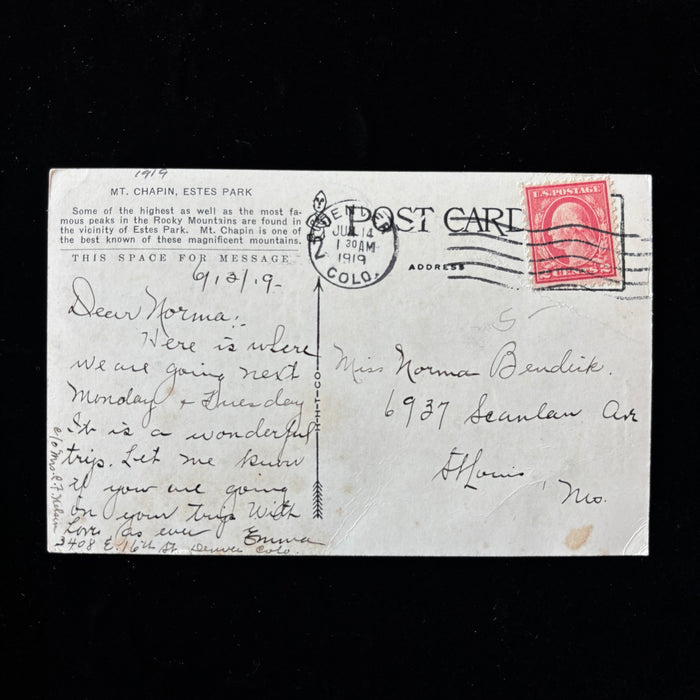 1919
MT. CHAPIN, ESTES PARK
Some of the highest as well as the most fa-
mous peaks in the Rocky Mountains are found in
the vicinity of Estes Park. Mt. Chapin is one of
the best known of these magnificent mountains.
THIS SPACE FOR MESSAGE
6/13/19-
Dear Norma:
Here is where
we are going next
Monday & Tuesday
It is a wonderful
trip. Let me know
if you are going
on your trip With
Love as ever Emma
3408 E. 16th St. Denver Colo.
c/o Mrs.
H-H-T-CO.
DENVER
JUN 14
1 30 AM
1919
COLO.
POST CARD
ADDRESS
U.S. POSTAGE
2 CENTS 2
5
Miss Norma Bendick.
6937 Scanlan Av
St Louis, Mo.